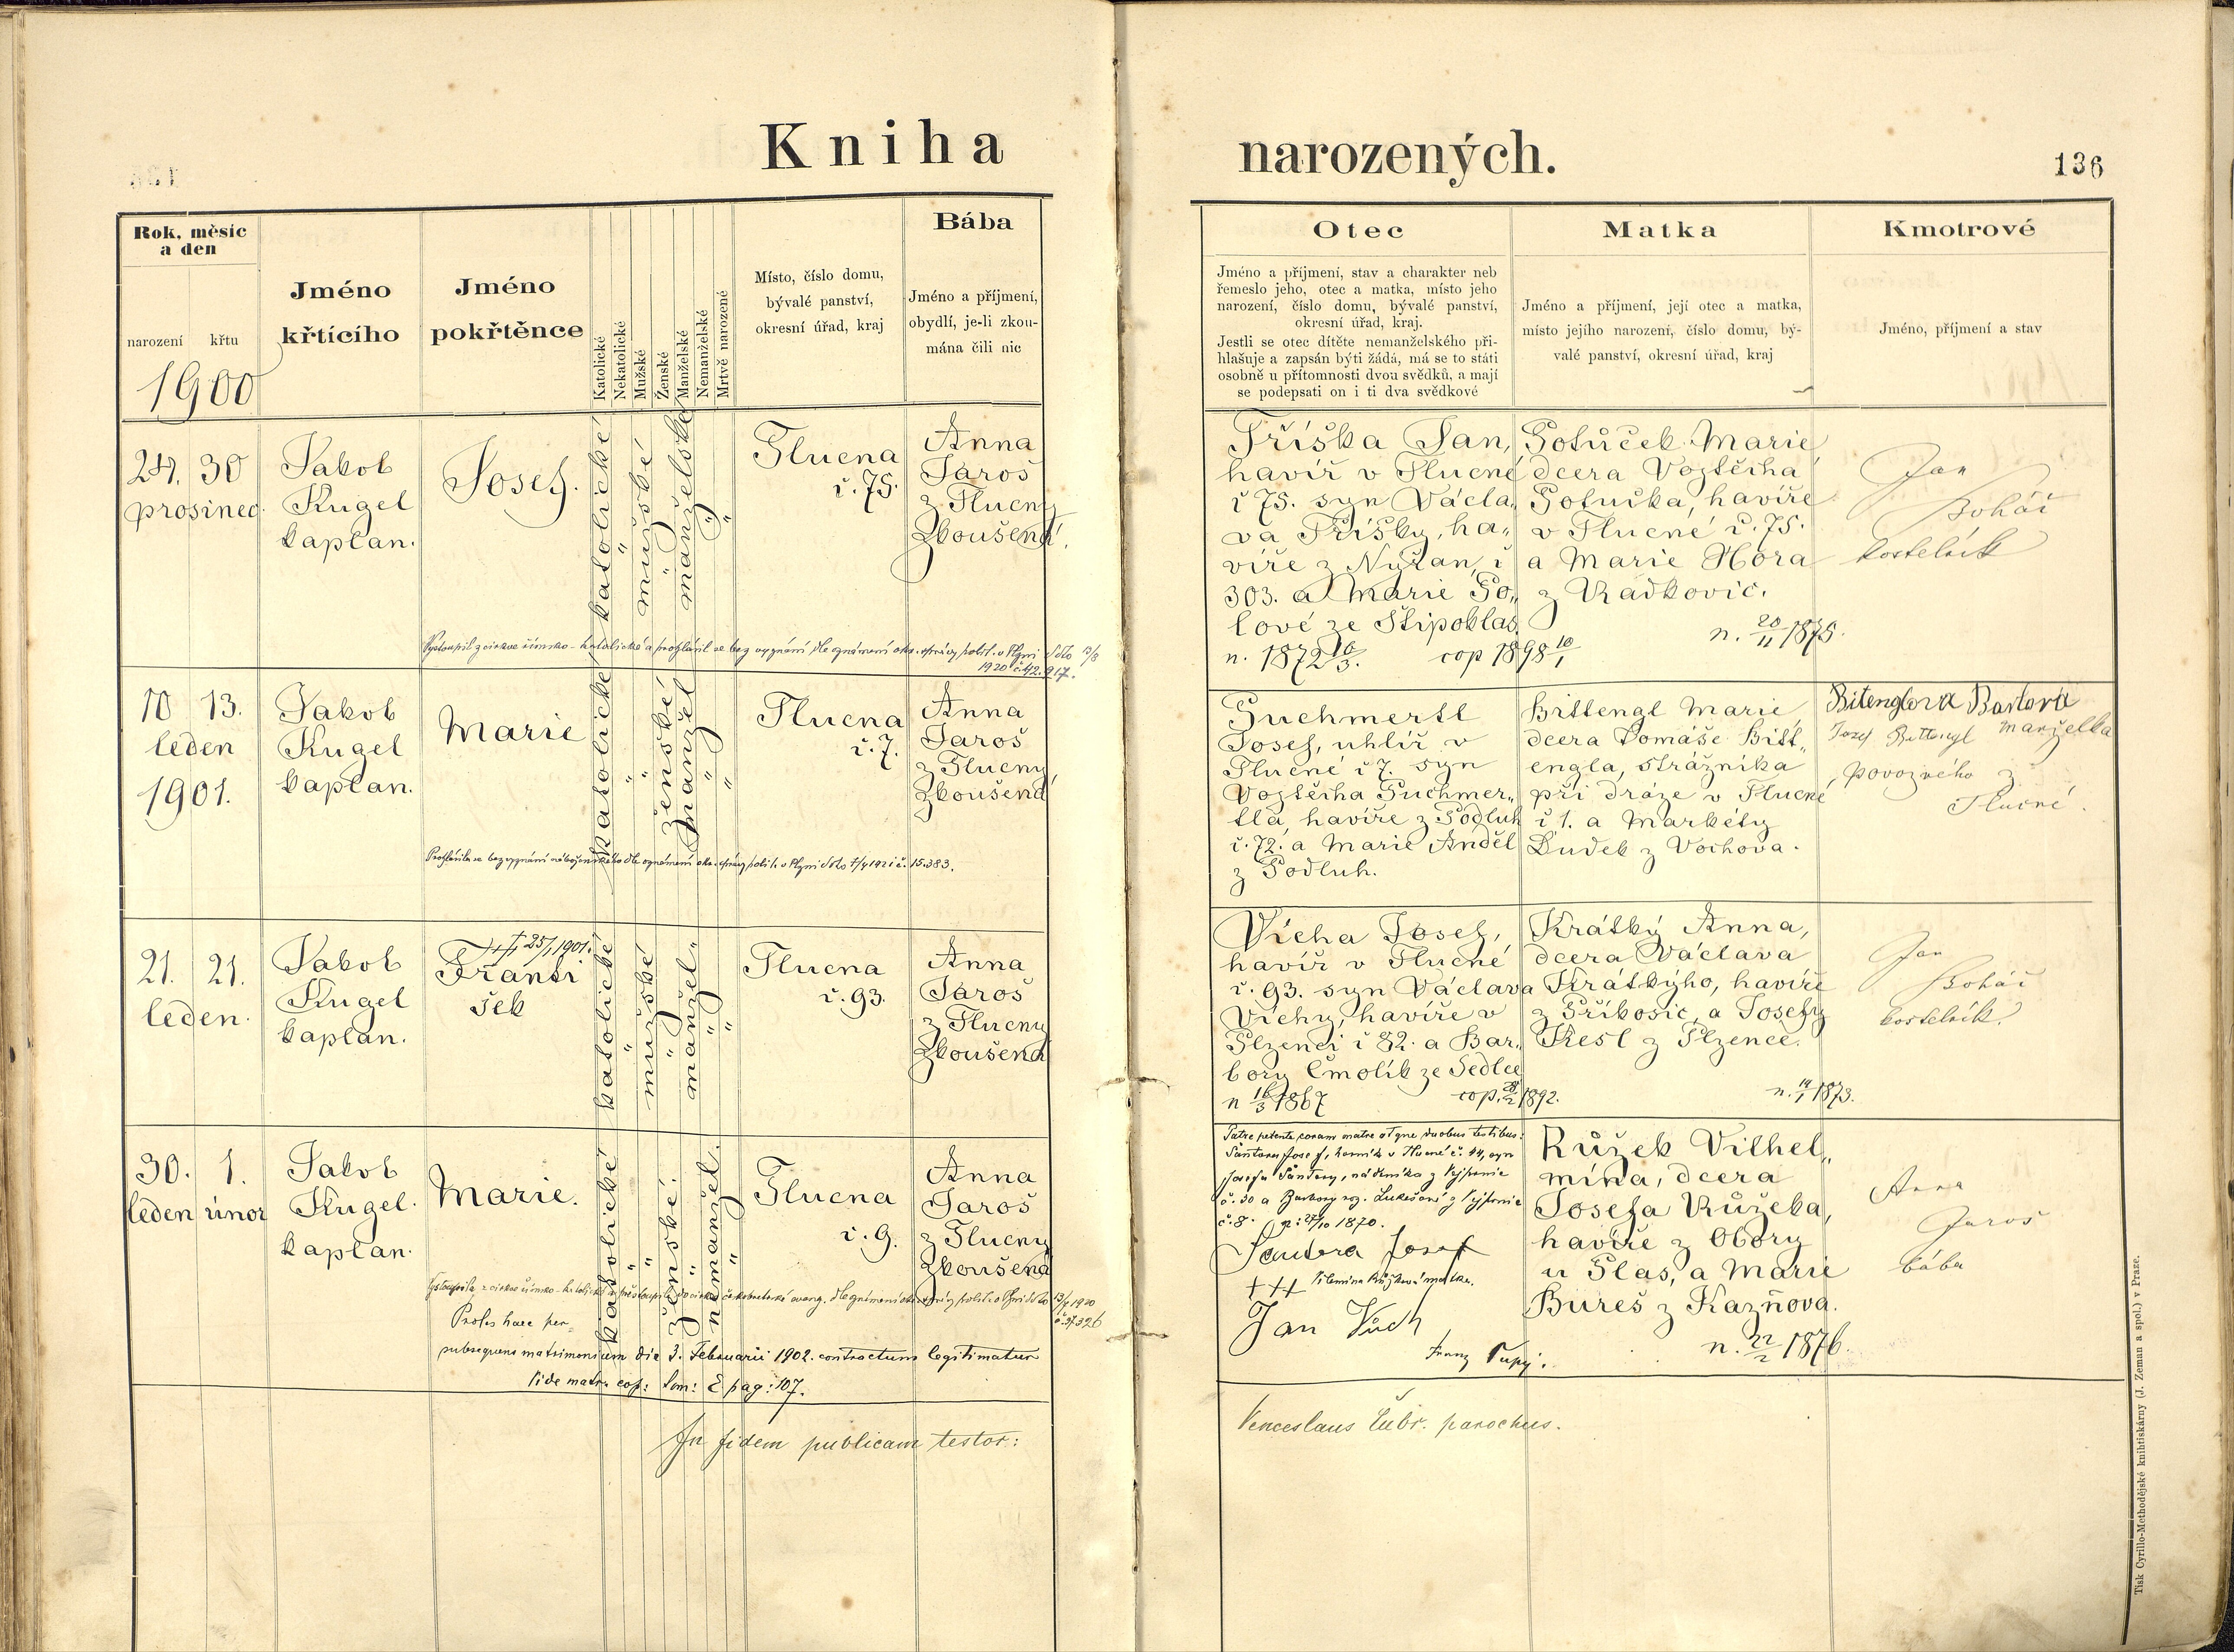 Kniha
narozených.
136
Rok, měsíc
a den
narození
křtu
1900
Jméno
křtícího
Jméno
pokřtěnce
Katolické
Nekatolické
Mužské
Ženské
Manželské
Nemanželské
Mrtvě narozené
Místo, číslo domu,
bývalé panství,
okresní úřad, kraj
Bába
Jméno a příjmení,
obydlí, je-li zkou-
mána čili nic
Otec
Jméno a příjmení, stav a charakter neb
řemeslo jeho, otec a matka, místo jeho
narození, číslo domu, bývalé panství,
okresní úřad, kraj.
Jestli se otec dítěte nemanželského při-
hlašuje a zapsán býti žádá, má se to státi
osobně u přítomnosti dvou svědků, a mají
se podepsati on i ti dva svědkové
Matka
Jméno a příjmení, její otec a matka,
místo jejího narození, číslo domu, bý-
valé panství, okresní úřad, kraj
Kmotrové
Jméno, příjmení a stav
24. 30
prosinec
Jakob
Kugel
kaplan.
Josef.
katolické
"
mužské
"
manželské
"
"
Tlucna
č. 75.
Anna
Jaroš
z Tlucny
Zkoušená.
Tříška Jan,
havíř v Tlucné
č 75. syn Václa„
va Tříšky, ha„
víře z Nýřan, č
303. a Marie Po„
lové ze Štipoklas
n. 1872 16/3. cop 1898 10/1
Potůček Marie
dcera Vojtěcha
Potučka, havíře
v Tlucné č. 75.
a Marie Hora
z Radkovic.
n. 20/11 1875.
Jan
Boháč
kostelník
Vystoupil z církve římsko-katolické a prohlásil se bez vyznání dle oznámení okr. správy polit. v Plzni ddto 13/8
1920 č. 42.917.
10 13.
leden
1901.
Jakob
Kugel
kaplan.
Marie
katolické
"
"
ženské
manžel
"
"
Tlucna
č. 7.
Anna
Jaroš
z Tlucny,
Zkoušená
Puchmertl
Josef, uhlíř v
Tlucné č 7. syn
Vojtěcha Puchmer„
tla, havíře z Podluh
č. 72. a Marie Anděl
z Podluh.
Bittengl Marie
dcera Tomáše Bitt„
engla, strážníka
při dráze v Tlucné
č 1. a Markéty
Dudek z Vochova.
Bitenglova Barbora
Josef Bittengl manželka
povozného z
Tlucné.
Prohlásila se bez vyznání náboženského dle oznámení okr. správy polit. v Plzni ddto 7/4 1921 č. 15.383.
21. 21.
leden.
Jakob
Kugel
kaplan.
† 25/1 1901.
Franti
šek
katolické
"
mužské
"
manžel„
"
"
Tlucna
č. 93.
Anna
Jaroš
z Tlucny
Zkoušená
Vícha Josef,
havíř v Tlucné
č. 93. syn Václava
Víchy, havíře v
Plzenci č 82. a Bar„
bory Čmolík ze Sedlce
n 16/3 1867 cop. 28/2 1892.
Krátký Anna,
dcera Václava
Krátkýho, havíře
z Příkosic, a Josefy
Kesl z Plzence.
n. 14/1 1873.
Jan
Boháč
kostelník.
30. 1.
leden únor
Jakob
Kugel.
kaplan.
Marie.
katolické
"
"
ženské.
"
nemanžel.
"
Tlucna
č. 9.
Anna
Jaroš
z Tlucny
Zkoušená
Patre petente coram matre atque duobus testibus:
Josef, horník v Tlucné č. 44, syn
Josefa Šantory, nádeníka z Vejprnic
č. 30 a Barbory roz. Lukešové z Vejprnic
č. 8. n: 27/10 1870.
Santora Josef
+++ Vilemína Růžková matka.
Jan Vuch
Franz
Růžek Vilhel„
mína, dcera
Josefa Růžeka,
havíře z Obory
u Plas, a Marie
Bureš z Kazňova.
n. 22/2 1876.
Anna
Jaroš
bába
Vystoupila z církve římsko-katolické a přestoupila do církve českobratrské evang. dle oznámení okr. správy polit. v Plzni ddto 13/7 1920
č. 37.326
Proles haec per
subsequens matrimonium die 3. Februarii 1902. contractum legitimatur
Vide matr. cop: Tom: E pag: 107.
In fidem publicam testor:
Venceslaus Čubr. parochus.
Tisk Cyrillo-Methodějské knihtiskárny (J. Zeman a spol.) v Praze.